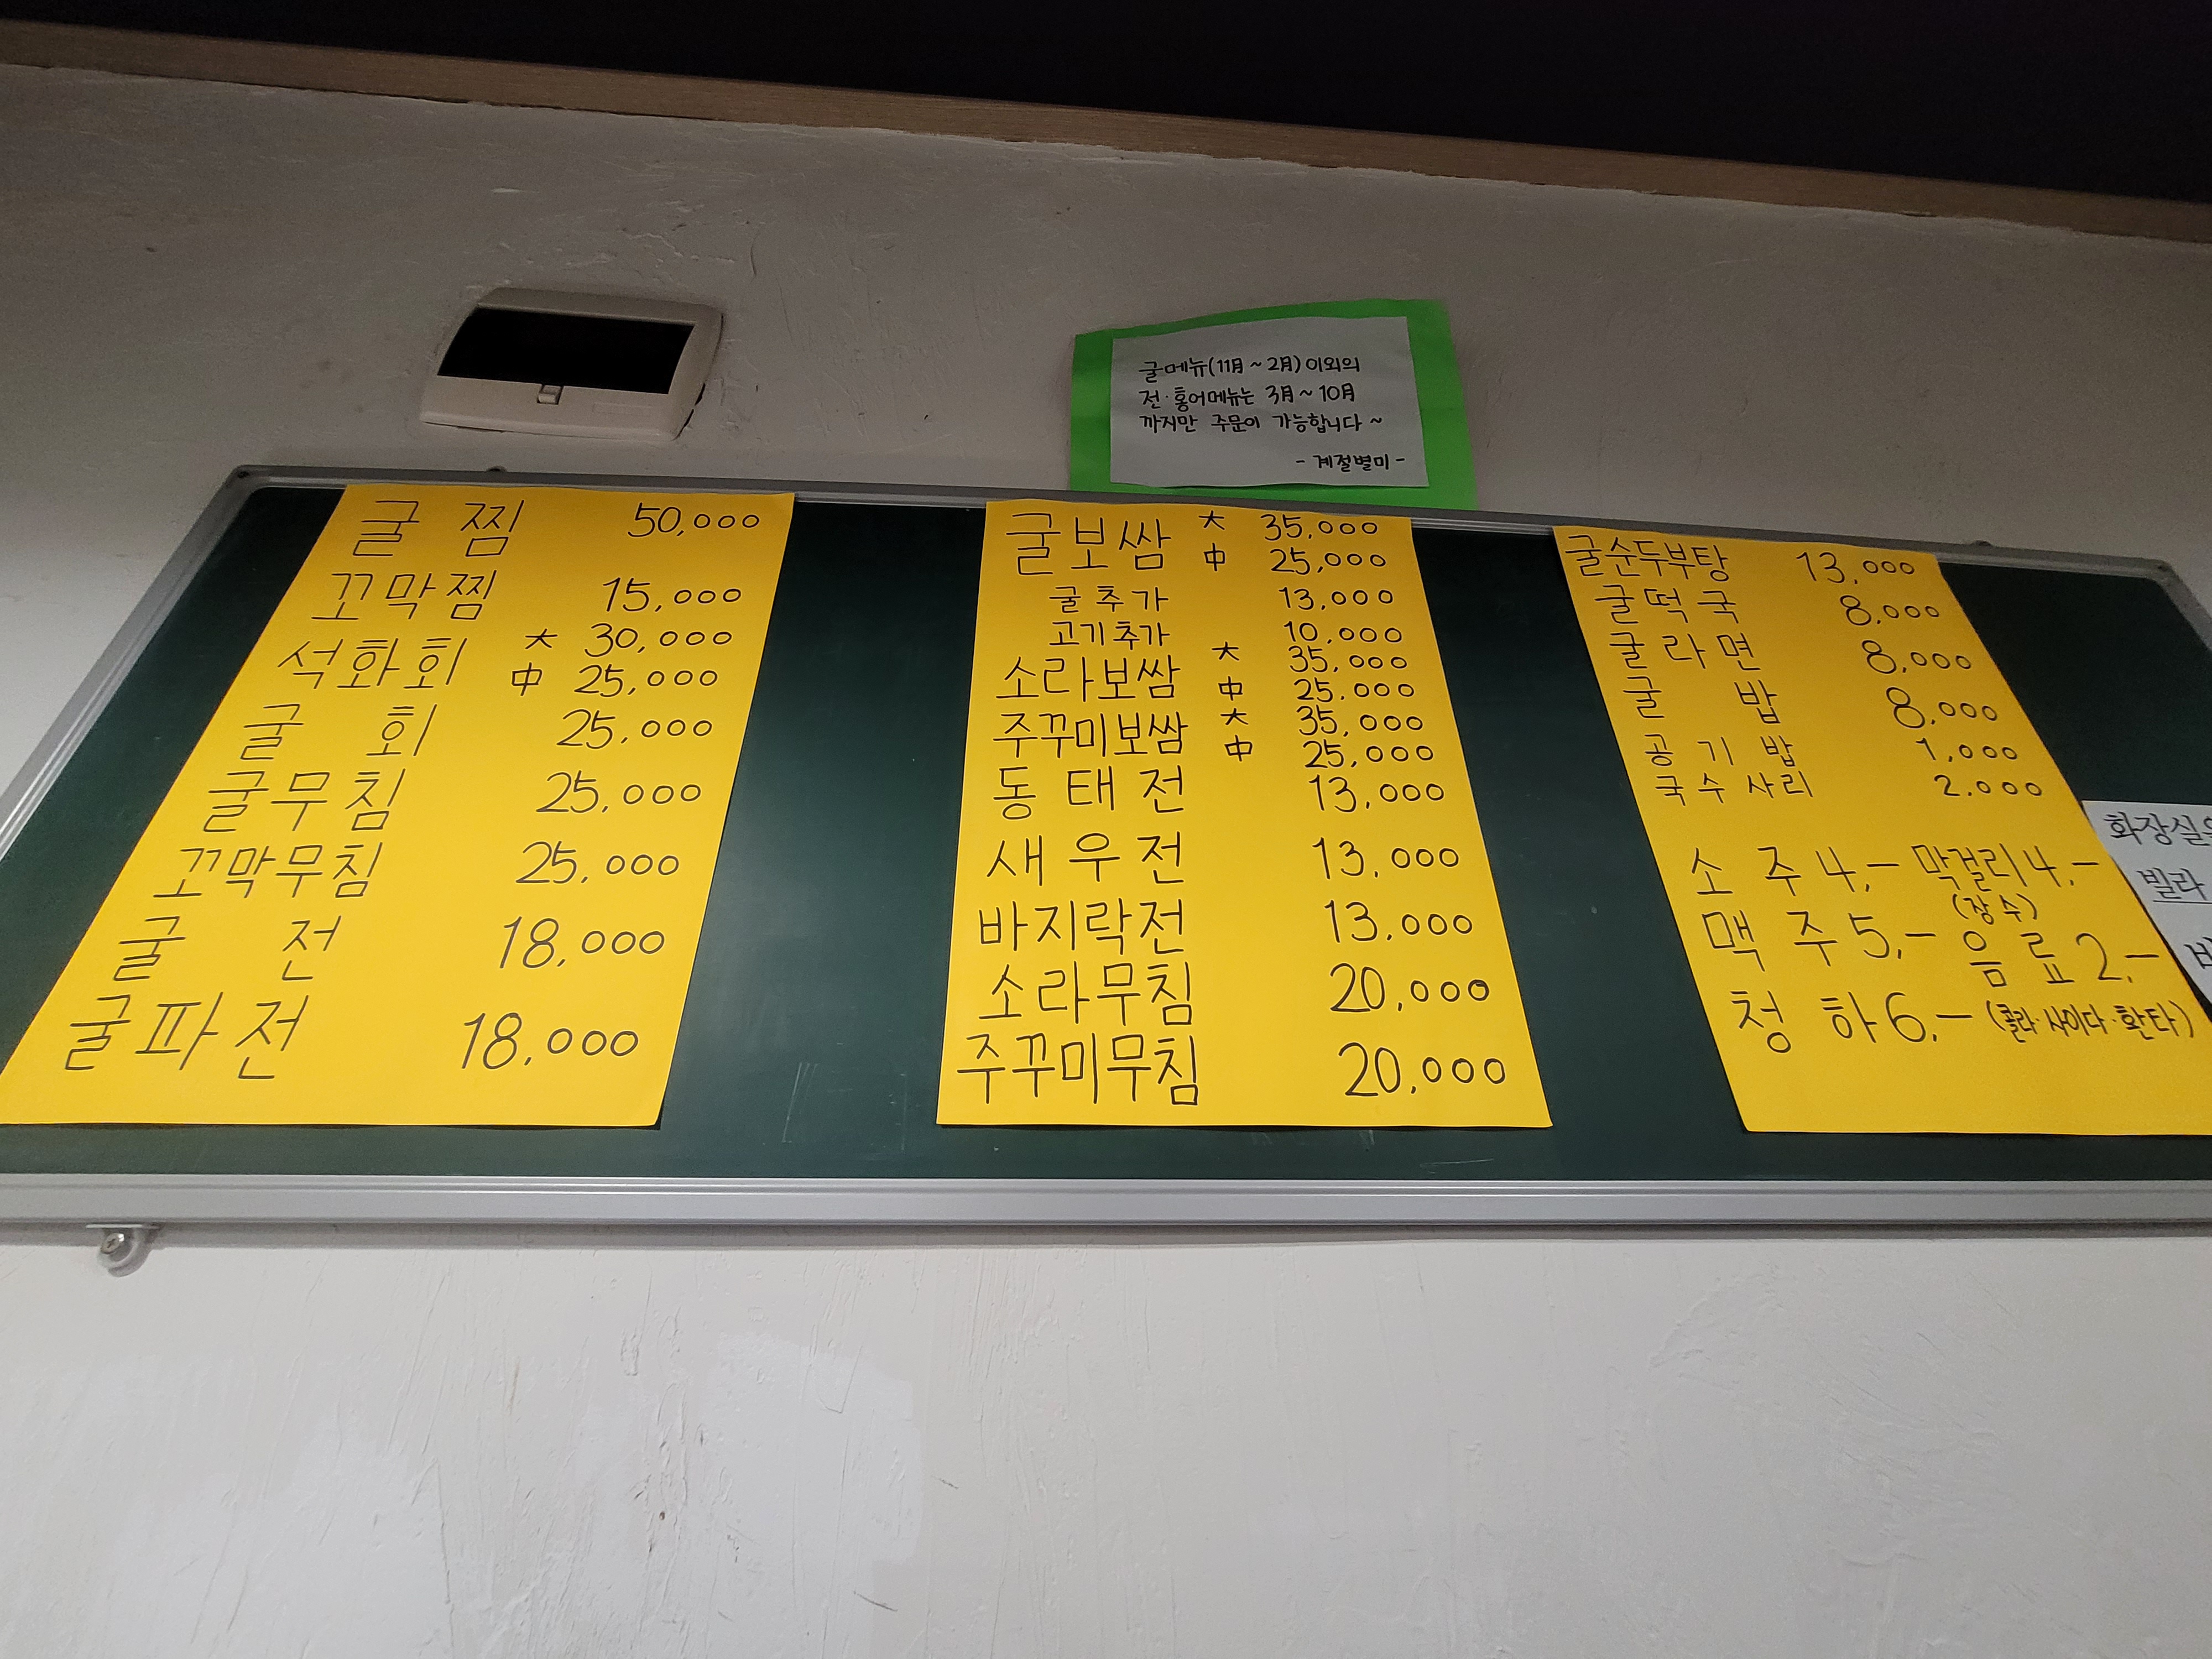 굴메뉴(11月~2月)이외의
전·홍어메뉴는 3月~10月
까지만 주문이 가능합니다~
-계절별미-
굴 찜 50,000
꼬막찜 15,000
석화회 大 30,000
中 25,000
굴 회 25,000
굴무침 25,000
꼬막무침 25,000
굴 전 18,000
굴파전 18,000
굴보쌈 大 35,000
中 25,000
굴추가 13,000
고기추가 10,000
소라보쌈 大 35,000
中 25,000
주꾸미보쌈 大 35,000
中 25,000
동태전 13,000
새우전 13,000
바지락전 13,000
소라무침 20,000
주꾸미무침 20,000
굴순두부탕 13,000
굴떡국 8,000
굴라면 8,000
굴 밥 8,000
공기밥 1,000
국수사리 2,000
소 주 4,- 막걸리 4,-
(장수)
맥 주 5,- 음 료 2,-
청 하 6,- (콜라·사이다·환타)
화장실
빌라